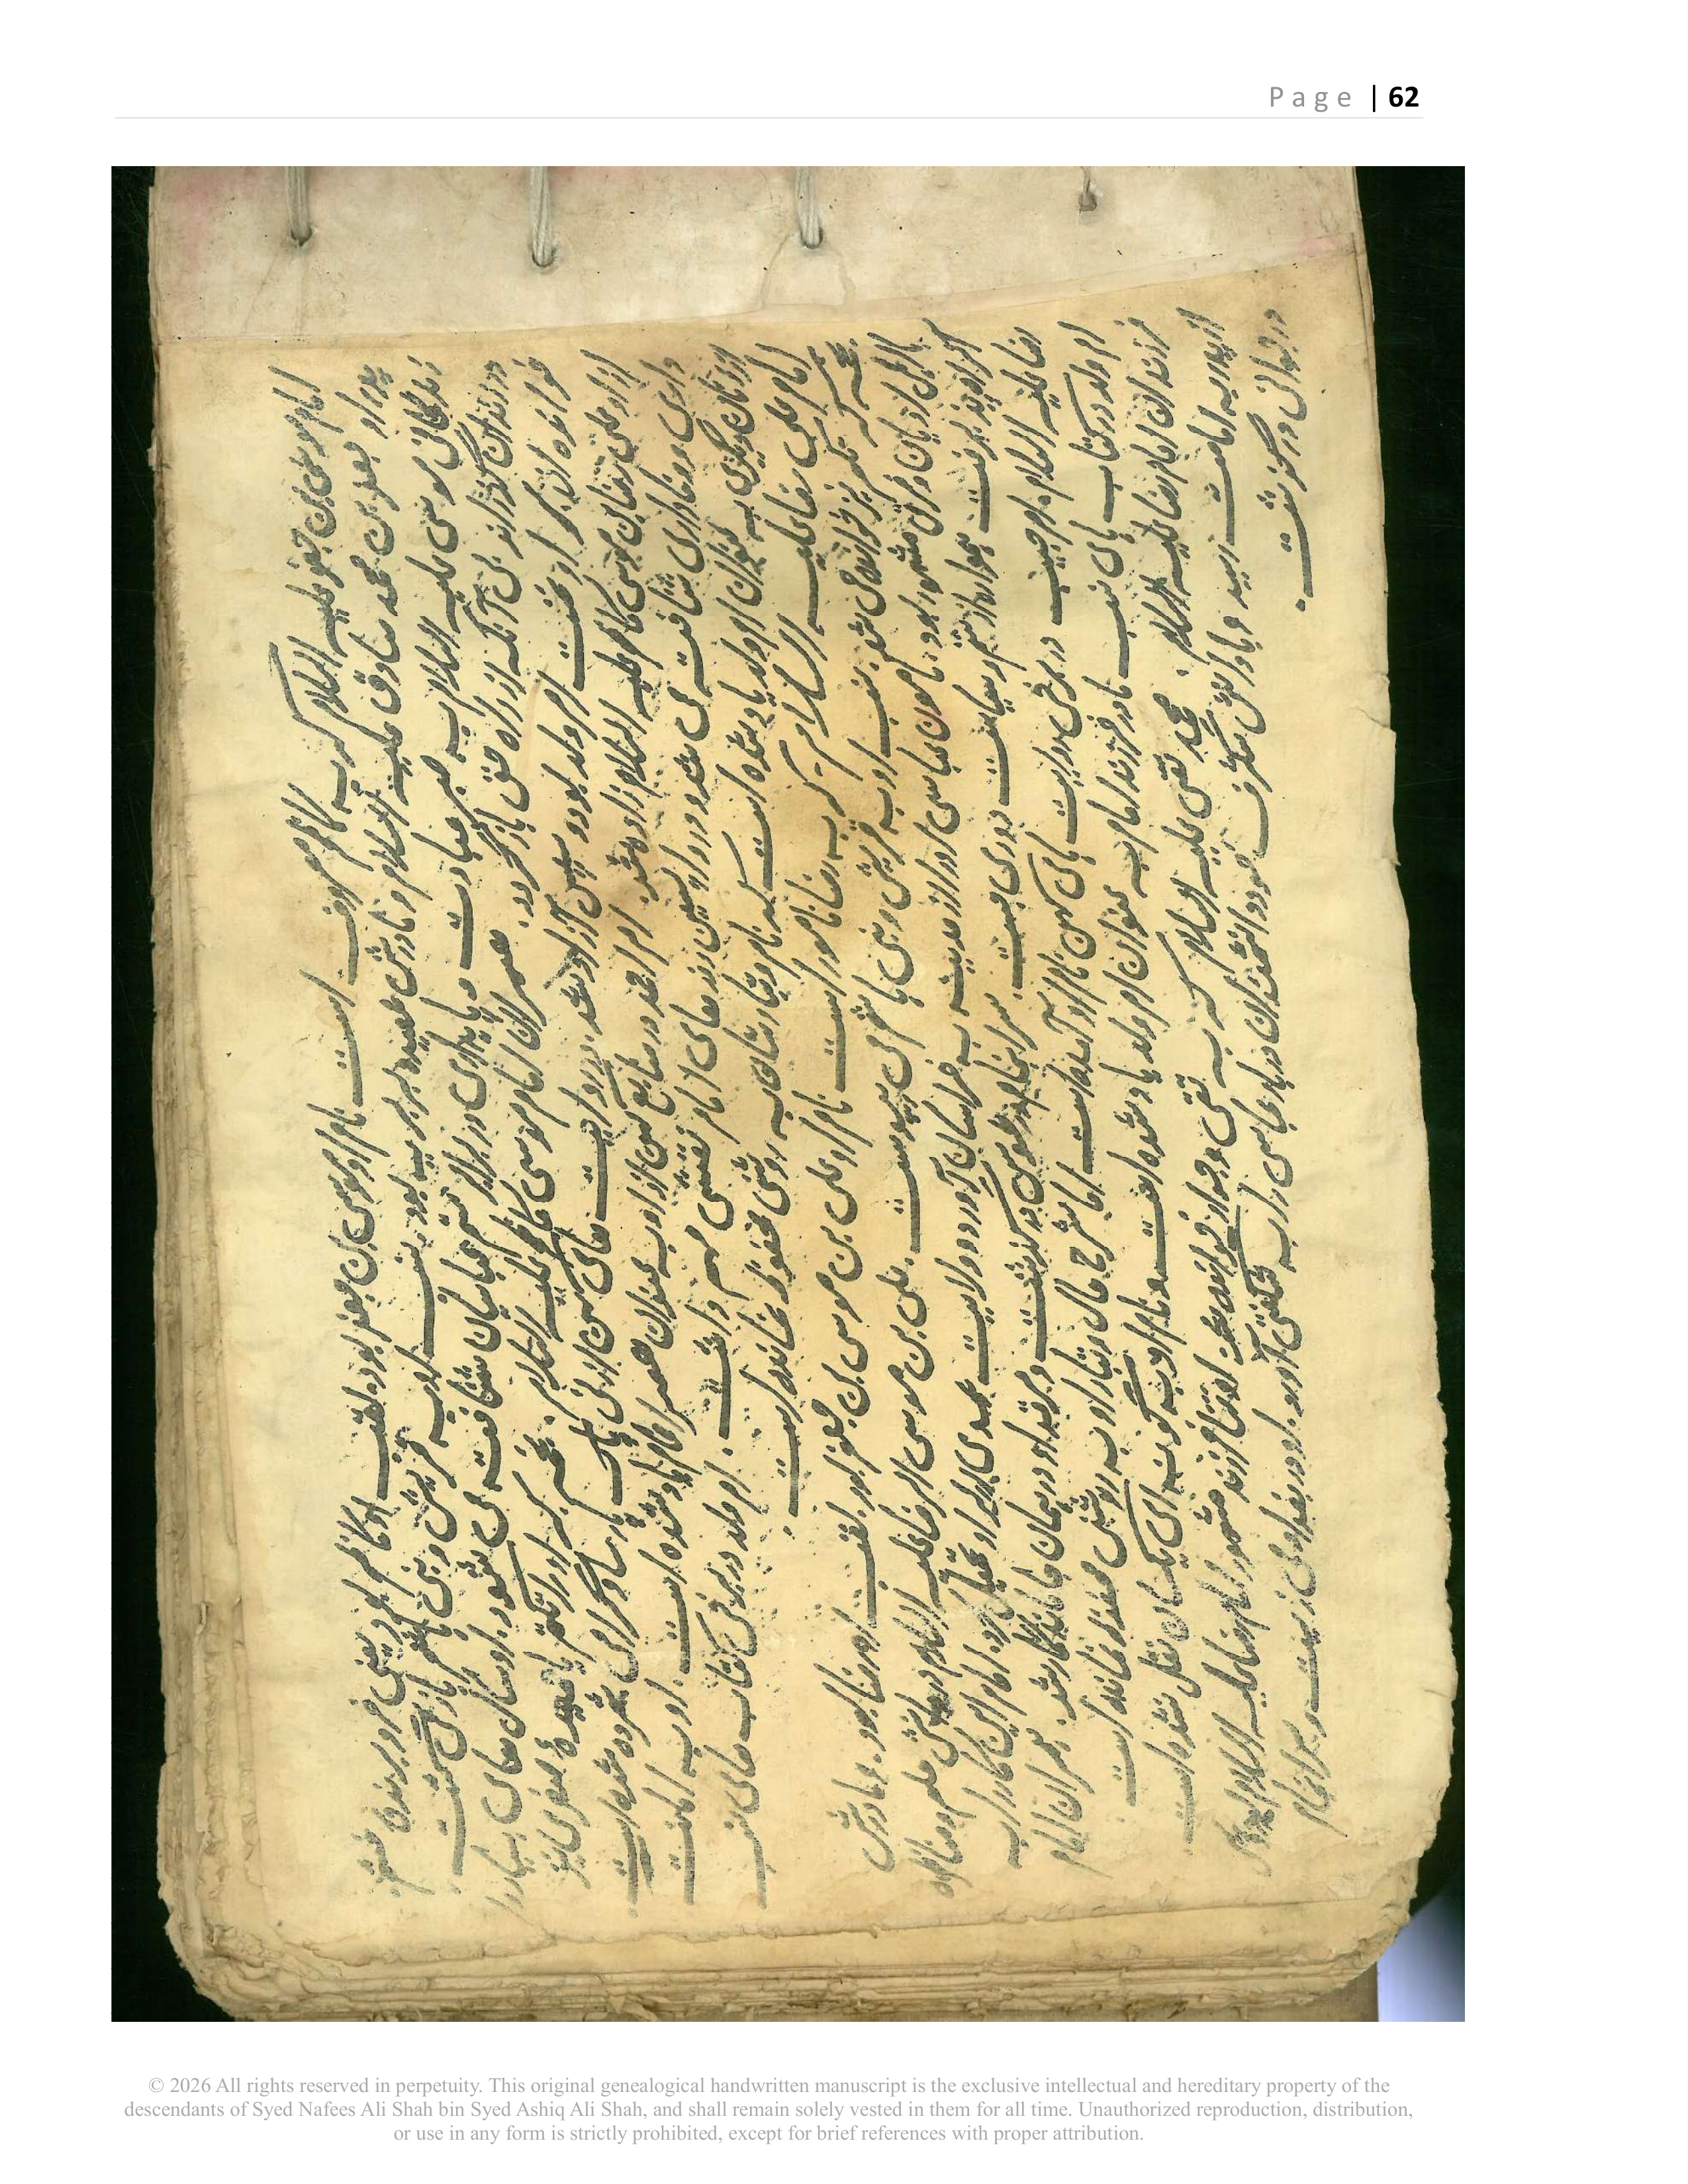 Page | 62
امام موسی بن جعفر علیه السلام که به کاظم معروف است نام او موسی بن جعفر بود. لقب او کاظم بود یعنی فرو برنده خشم.
پدر او جعفر بن محمد صادق علیه السلام و مادرش حمیده بربریه بود. نسب او به قریش و بنی هاشم باز می گشت.
زندگانی موسی علیه السلام به صبر عبادت و پایداری در برابر ستم عباسیان شناخته می شود. او سال های بسیار را
در زندان گذراند بی آنکه از راه حق بازگردد. همسران امام موسی کاظم علیه السلام. نجمه که او را تکتم یا
خوانده اند. بحر ام ولد بود و سپس آزاد شد. در روایت های کهن از نی پاک پارسا و گرامی شمرده شده است.
از او علی رضا بن موسی کاظم علیه السلام زاده شد. ام احمد در منابع کهن از او به عنوان همسر امام یاد شده است. او به امانت
داری و وفاداری شناخته می شد و در واپسین روزهای امام نقشی مهم داشت. ام ولد در برخی کتاب های نسب
از زنان دیگری به عنوان ام ولد یاد شده است که نام و تبارشان به روشنی محفوظ نمانده است.
امام علی رضا علیه السلام که به رضا نامور است نام او علی بن موسی بن جعفر بود. لقب او رضا بود. مادرش
نجمه که تکتم نیز خوانده می شود. نسب او به قریش و بنی هاشم می پیوست. علی بن موسی الرضا علیه السلام دانش علم و مناظره
با اهل ادیان و فرق مشهور بود. مامون عباسی او را از مدینه به خراسان آورد و ولایت عهدی را بر او تحمیل کرد. امام این کار را به
اکراه پذیرفت همواره از ستم و سیاست دوری جست. سرانجام در طوس درگذشت و مرقد او در همان جا ماندگار شد. همسران امام
رضا علیه السلام. ام حبیب در برخی روایت های کهن نام او آمده است اما شرح حال و تبار او به روشنی محفوظ نمانده است.
ام ولد در کتاب های نسب مادر فرزند امام به عنوان ام ولد یاد شده است و نام او به گونه ای یکسان نقل نشده است.
فرزندان امام رضا علیه السلام. محمد تقی علیه السلام که به تقی و جواد خوانده می شد فرزند مشهور امام رضا علیه السلام بود. پس
از پدر به امامت رسید و با دانش شگرف خود دانشمندان دربار عباسی را به شگفتی آورد. او در بغداد می زیست و سرانجام
در جوانی درگذشت.
© 2026 All rights reserved in perpetuity. This original genealogical handwritten manuscript is the exclusive intellectual and hereditary property of the
descendants of Syed Nafees Ali Shah bin Syed Ashiq Ali Shah, and shall remain solely vested in them for all time. Unauthorized reproduction, distribution,
or use in any form is strictly prohibited, except for brief references with proper attribution.